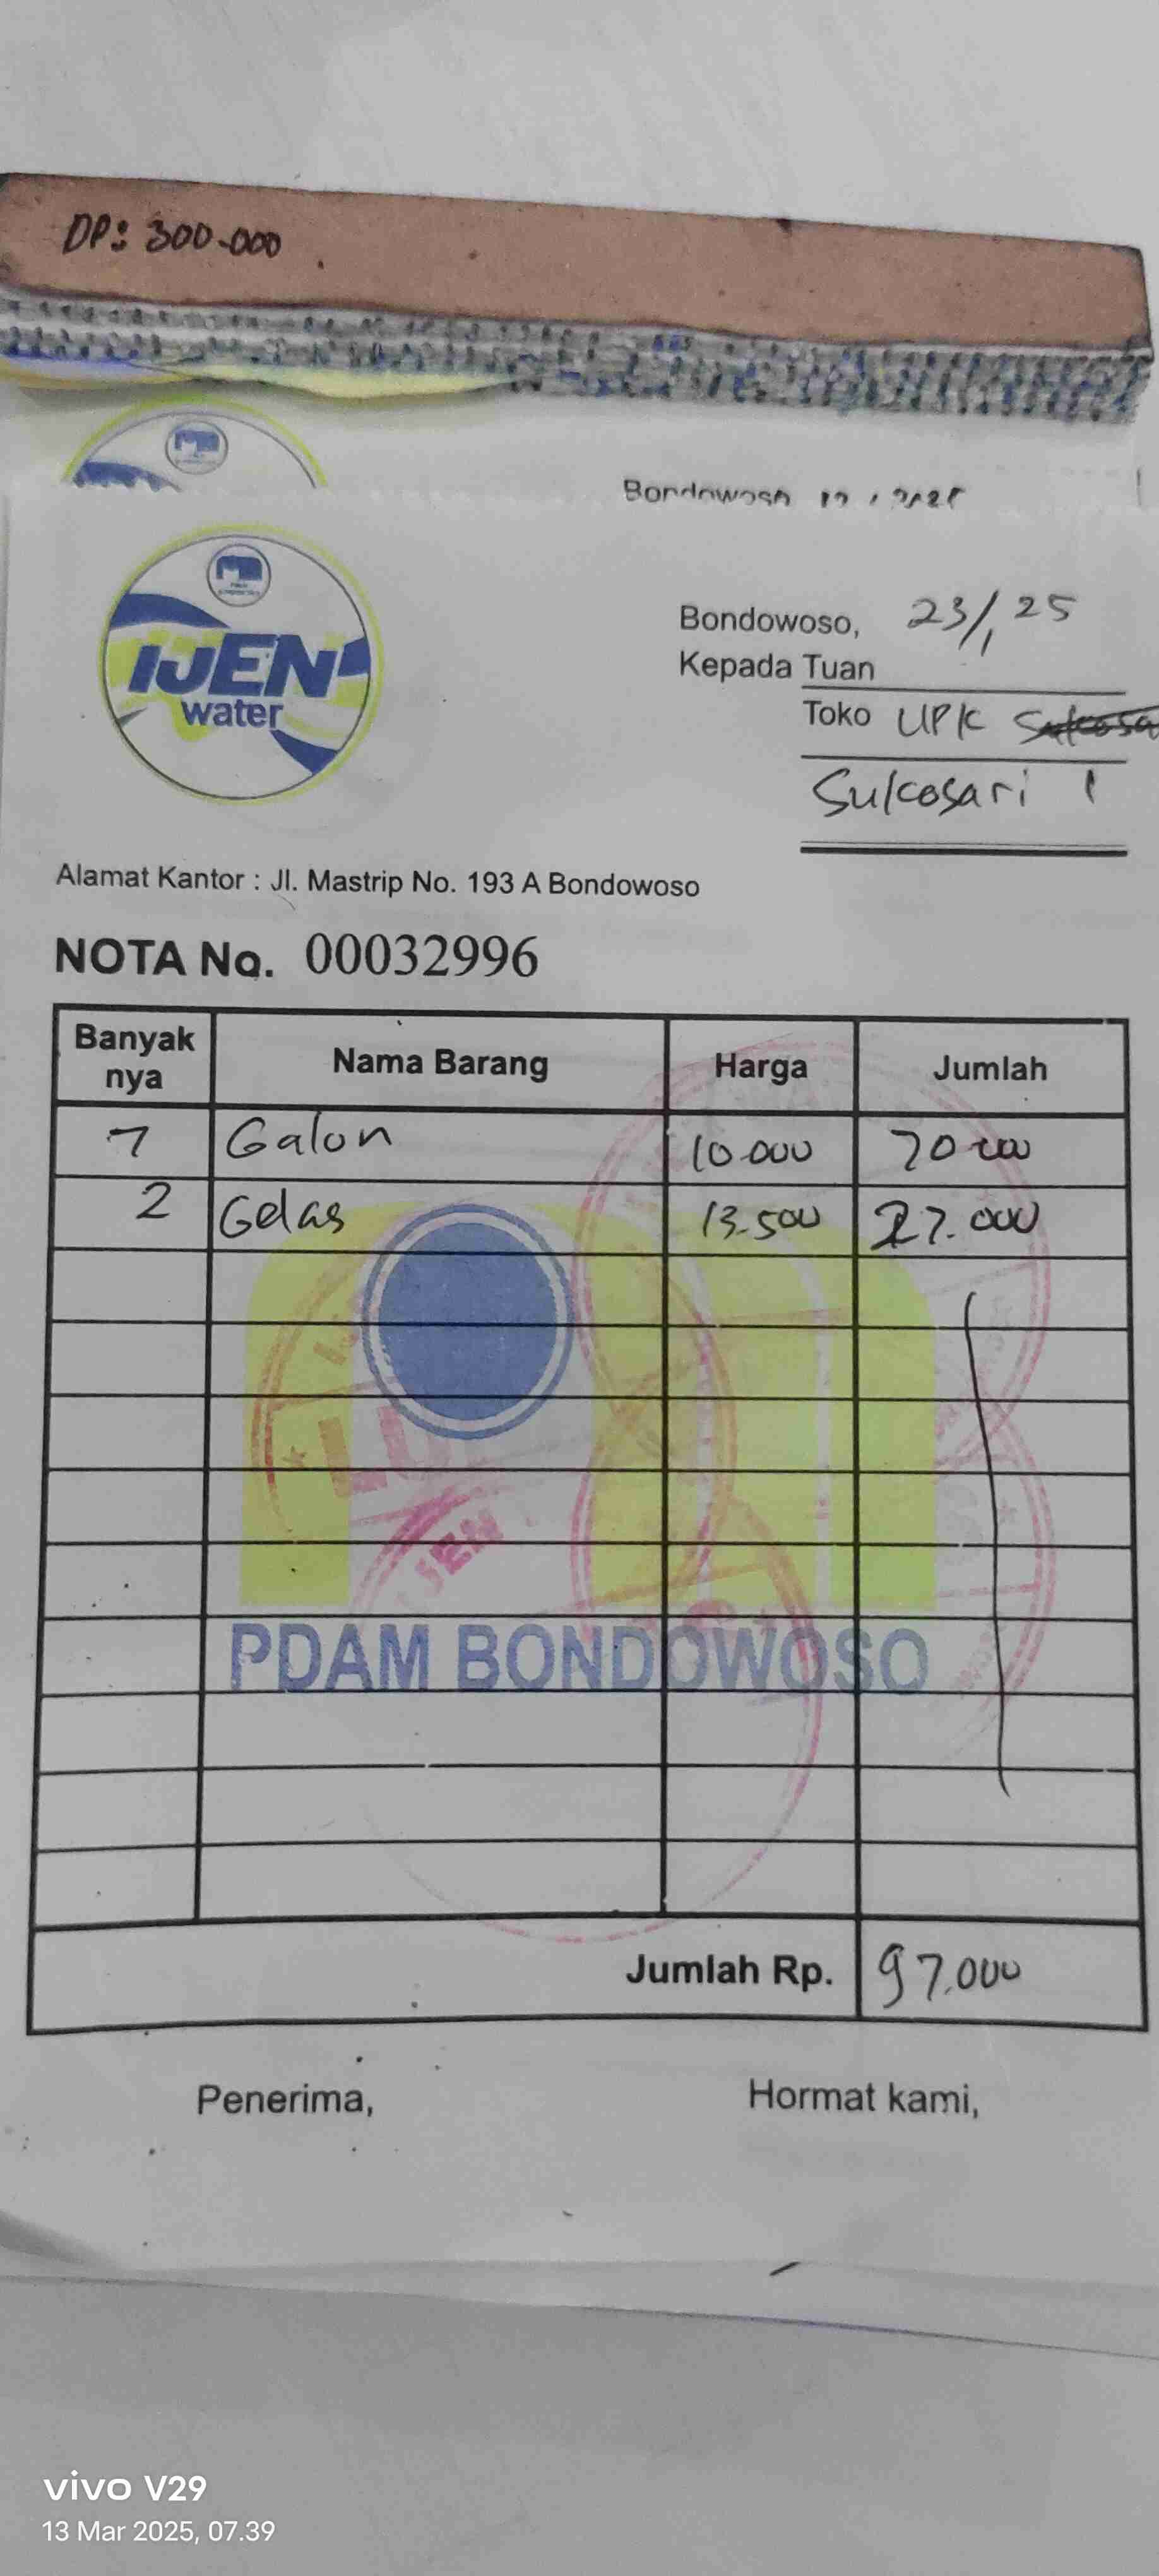 DP: 300.000
Bondowoso
IJEN
water
Bondowoso, 23/1 25
Kepada Tuan
Toko UPK
Sukosari 1
Alamat Kantor : Jl. Mastrip No. 193 A Bondowoso
NOTA No. 00032996
Banyak nya Nama Barang Harga Jumlah
7 Galon 10.000 70.000
2 Gelas 13.500 27.000
IJEN
PDAM BONDOWOSO
Jumlah Rp. 97.000
Penerima, Hormat kami,
vivo V29
13 Mar 2025, 07.39